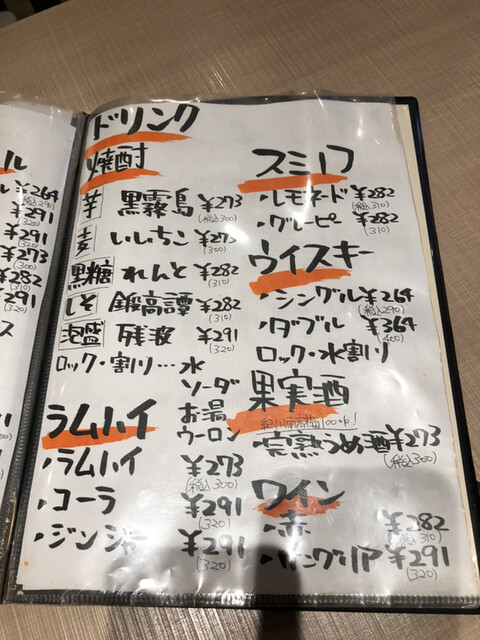 ドリンク
焼酎
芋 黒霧島 ¥273
(税込300)
麦 いいちこ ¥273
(300)
黒糖 れんと ¥282
(310)
しそ 鍛高譚 ¥282
(310)
泡盛 残波 ¥291
(320)
ロック・割り…水
ソーダ
お湯
ウーロン
ラムハイ
・ラムハイ ¥273
(税込300)
・コーラ ¥291
(320)
・ジンジャー ¥291
(320)
スミノフ
・レモネード ¥282
(税込310)
・グレーピー ¥282
(310)
ウイスキー
・シングル ¥264
(税込290)
・ダブル ¥364
(400)
ロック・水割り
果実酒
紀州南高梅100%!
・完熟うめ酒 ¥273
(税込300)
ワイン
・赤 ¥282
(税込310)
・サングリア ¥291
(320)
ル
¥264
(税込290)
¥291
(320)
¥291
(320)
¥273
(300)
¥282
(310)
¥291
(320)
ス